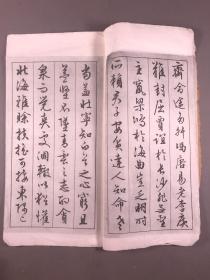 齊命運多舛馮唐易老李廣
難封屈賈誼於長沙非無聖
主竄梁鴻於海曲豈乏明時
所賴君子安貧達人知命老
當益壯寧知白首之心窮且
益堅不墜青雲之志酌貪
泉而覺爽處涸轍以猶懽
北海雖賒扶搖可接東隅已